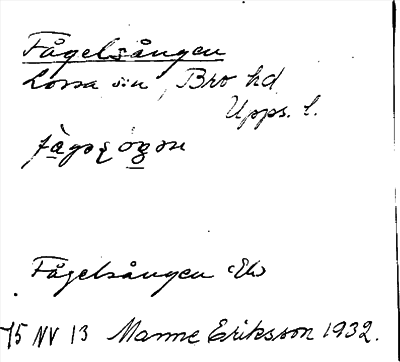 Fågelsången
Lossa sn, Bro hd
Upps. l.
Fågelsången
75 NV 13 Manne Eriksson 1932.